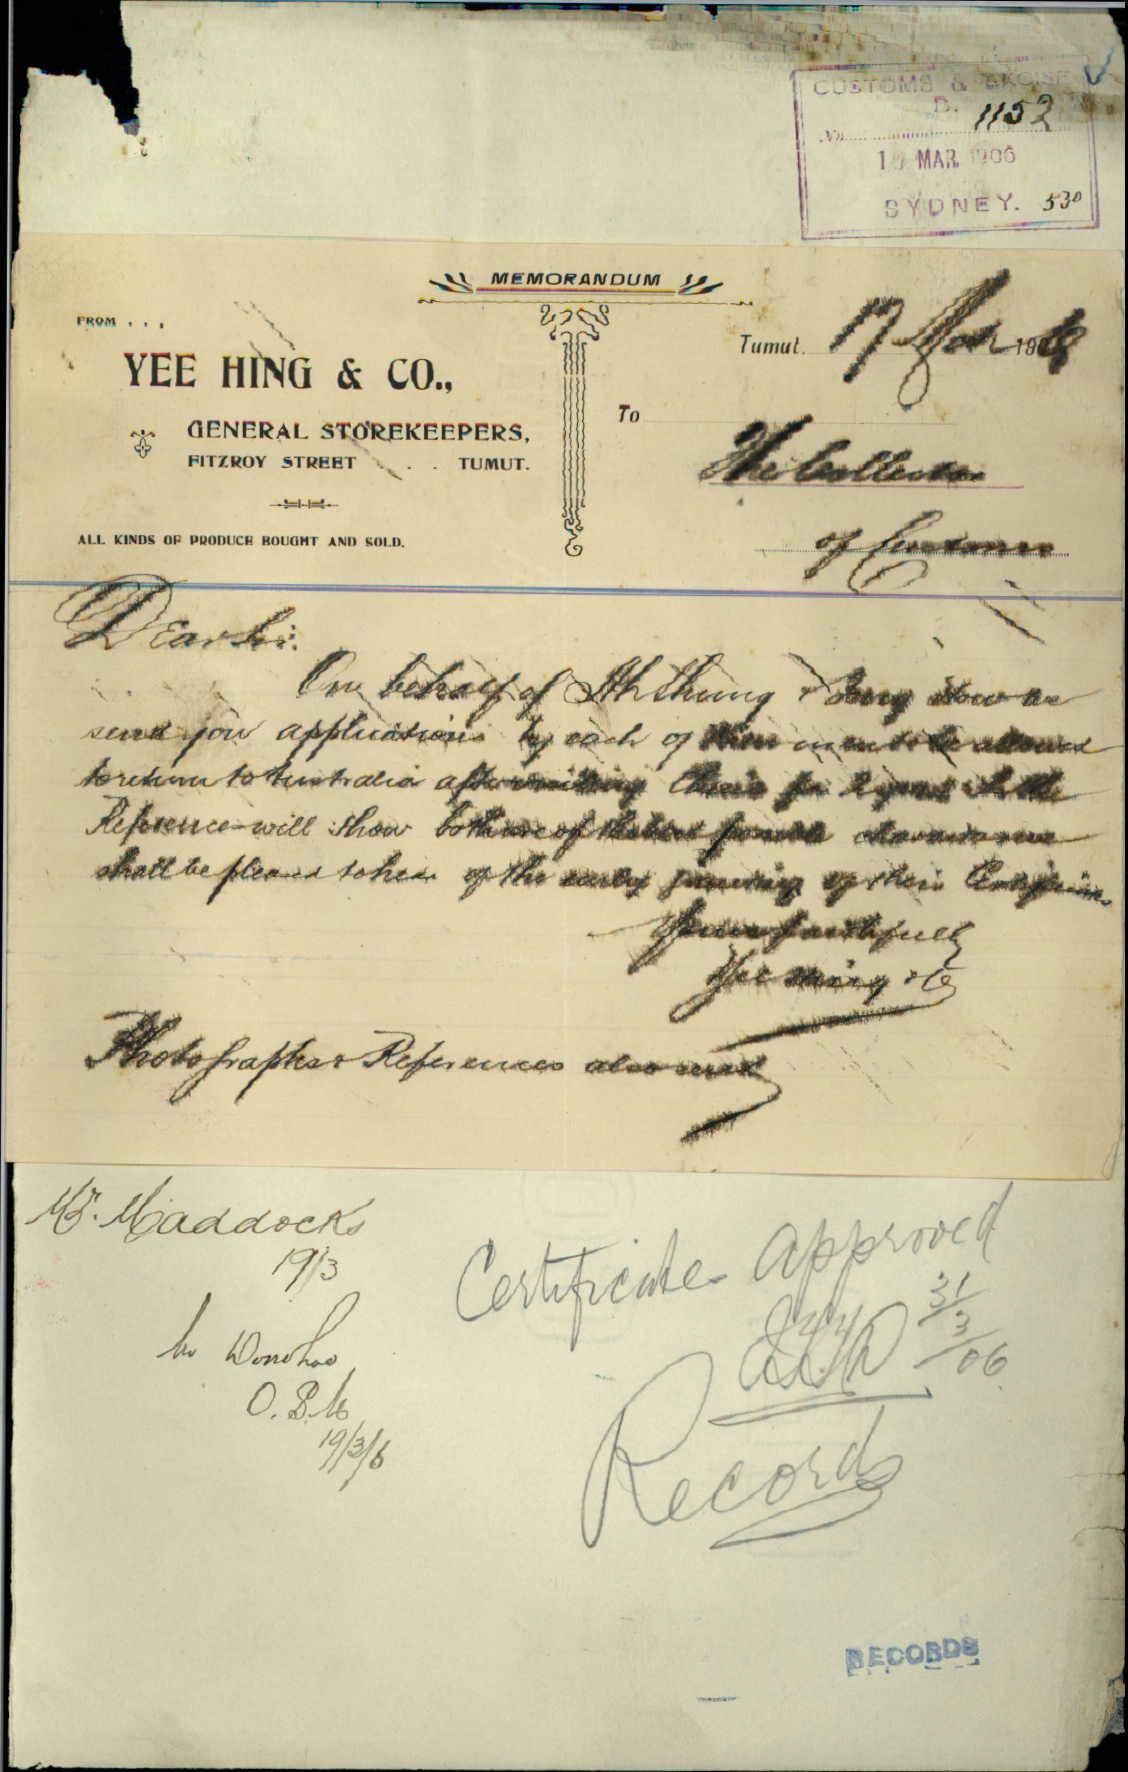 CUSTOMS & EXCISE
D.
No. 1152
MAR. 1906
SYDNEY. 530
MEMORANDUM
FROM . . .
YEE HING & CO.,
GENERAL STOREKEEPERS,
FITZROY STREET . . TUMUT.
ALL KINDS OF PRODUCE BOUGHT AND SOLD.
Tumut. 17 Mch 1906
To
The Collector
of Customs
Dear Sir.
On behalf of Ah & we
send you applications by each of to be allowed
to return to Australia after visiting China for 2 years
Reference will show both are of the best
shall be pleased to hear of the early granting of their
Yours faithfully
Yee Hing & Co
Photographs & References also
Mr. Maddocks
19/3
Mr Donohoe
19/3/6
Certificate approved
31/3/06
Records
RECORDS